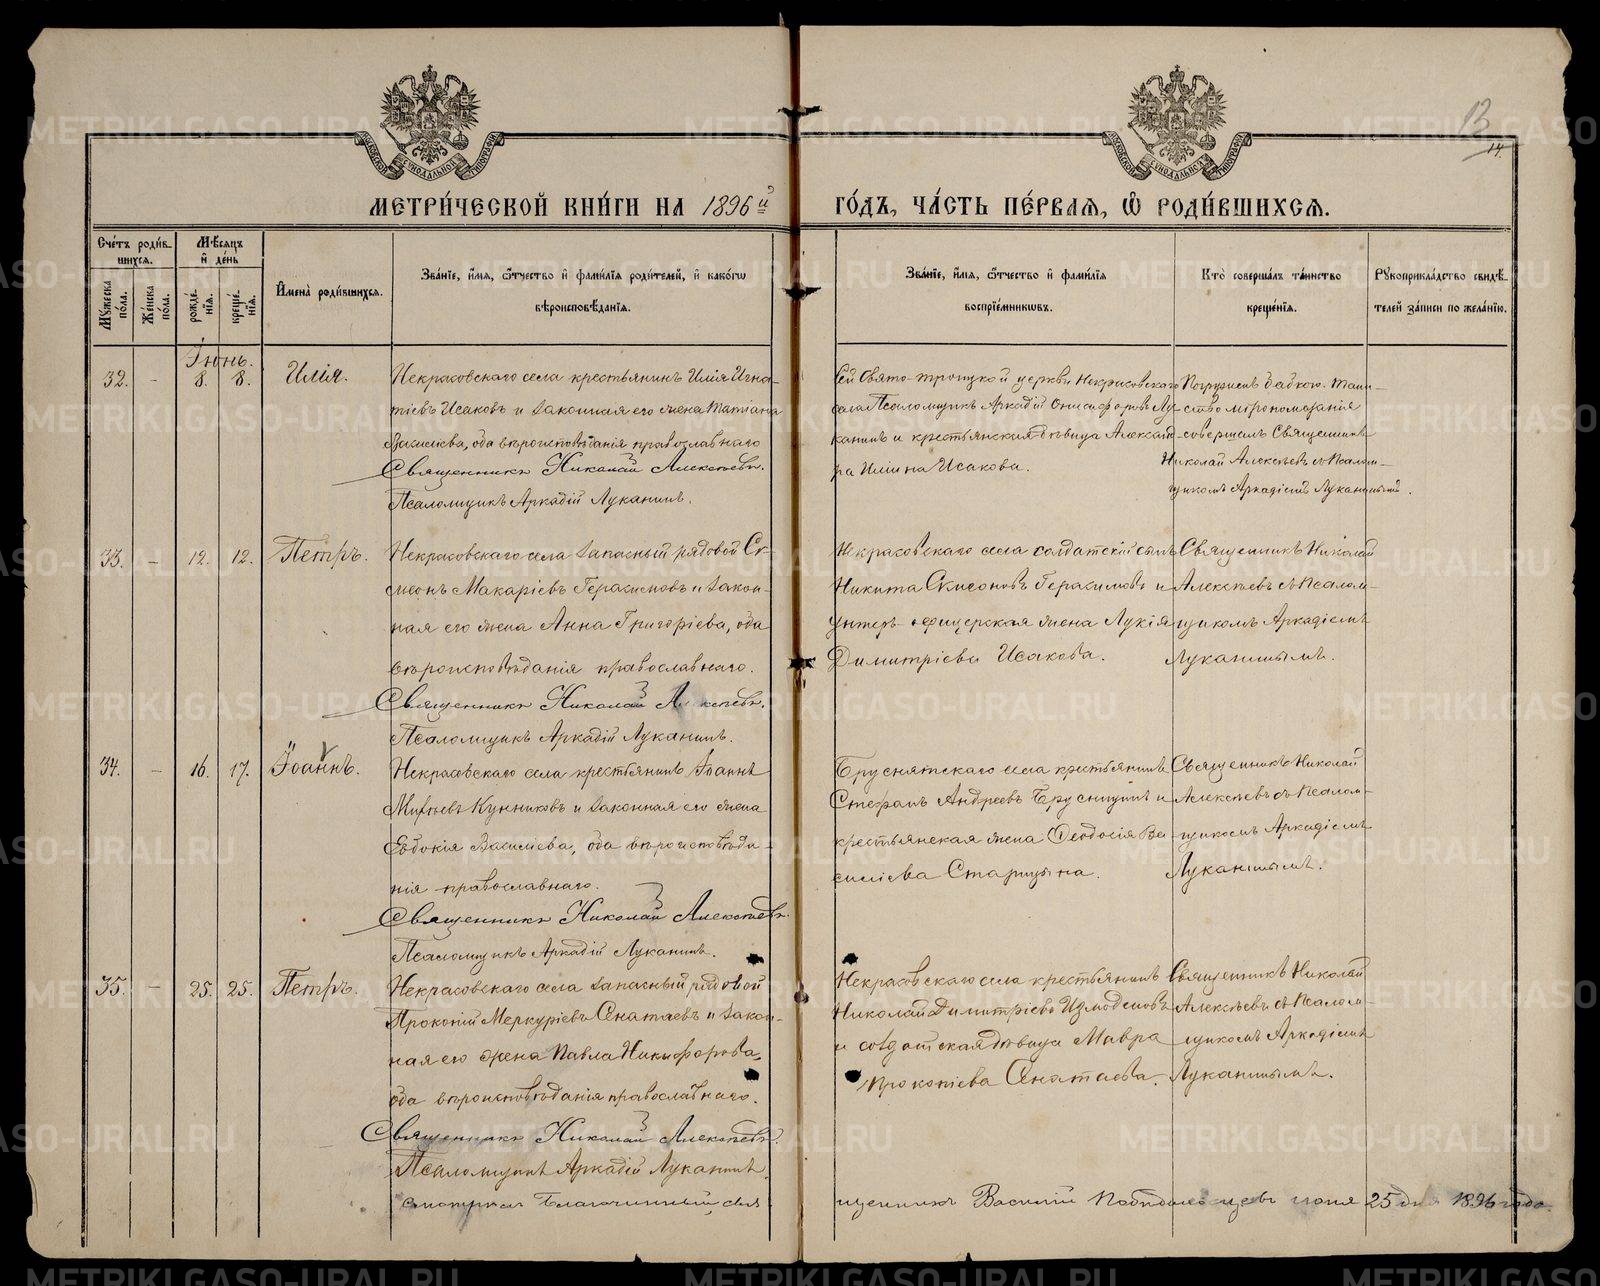 13
14.
МОСКОВСКОЙ СѴНОДАЛЬНОЙ ТИПОГРАФІИ
МОСКОВСКОЙ СѴНОДАЛЬНОЙ ТИПОГРАФІИ
МЕТРИ́ЧЕСКОЙ КНИ́ГИ НА 1896й ГО́ДЪ, ЧА́СТЬ ПЕ́РВАѦ, Ѡ РОДИ́ВШИХСѦ.
Сче́тъ роди́в-
шихся.
Мѣ́сяцъ
и де́нь
Му́жеска по́ла.
Же́нска по́ла.
рожде́нїя.
креще́нїя.
Имена̀ роди́вшихся.
Зва́нїе, и́мя, ѻ҆́тчество и фами́лїя роди́телей, и како́гѡ
вѣроисповѣ́данїя.
Зва́нїе, и́мя, ѻ҆́тчество и фами́лїя
воспрїе́мникѡвъ.
Кто̀ соверша́лъ та́инство
креще́нїя.
Рꙋкоприкла́дство свидѣ́-
телей за́писи по жела́нїю.
Іюнь.
32. - 8. 8. Илія.
Некрасовскаго села крестьянинъ Илія Игна-
тіевъ Исаковъ и законная его жена Татіана
Васильева, оба вѣроисповѣданія православнаго
Священникъ Николай Алексѣевъ.
Псаломщикъ Аркадій Луканинъ.
Сей Свято-троицкой церкви Некрасовскаго
села Псаломщикъ Аркадій Онисифоровъ Лу-
канинъ и крестьянская дѣвица Александ-
ра Иліина Исакова.
Погруженъ бабкою. Таин-
ство мѵропомазанія
совершалъ Священникъ
Николай Алексѣевъ съ Псалом-
щикомъ Аркадіемъ Луканинымъ.
33. - 12. 12. Петръ.
Некрасовскаго села запасный рядовой Си-
меонъ Макаріевъ Герасимовъ и закон-
ная его жена Анна Григоріева, оба
вѣроисповѣданія православнаго.
Священникъ Николай Алексѣевъ.
Псаломщикъ Аркадій Луканинъ.
Некрасовскаго села солдатскій сынъ
Никита Симеоновъ Герасимовъ и
унтеръ-офицерская жена Лукія
Димитріева Исакова.
Священникъ Николай
Алексѣевъ съ Псалом-
щикомъ Аркадіемъ
Луканинымъ.
34. - 16. 17. Іоаннъ.
Некрасовскаго села крестьянинъ Іоаннъ
Матѳіевъ Кунниковъ и законная его жена
Евдокія Васильева, оба вѣроисповѣда-
нія православнаго.
Священникъ Николай Алексѣевъ.
Псаломщикъ Аркадій Луканинъ.
Бруснятскаго села крестьянинъ
Стефанъ Андреевъ Бруснитинъ и
крестьянская жена Ѳеодосія Ва-
силіева Старицына.
Священникъ Николай
Алексѣевъ съ Псалом-
щикомъ Аркадіемъ
Луканинымъ.
35. - 25. 25. Петръ.
Некрасовскаго села запасный рядовой
Прокопій Меркуріевъ Сенатаевъ и закон-
ная его жена Павла Никифорова,
оба вѣроисповѣданія православнаго.
Священникъ Николай Алексѣевъ.
Псаломщикъ Аркадій Луканинъ
Некрасовскаго села крестьянинъ
Николай Димитріевъ Измоденовъ
и солдатская дѣвица Мавра
Прокопіева Сенатаева.
Священникъ Николай
Алексѣевъ съ Псалом-
щикомъ Аркадіемъ
Луканинымъ.
Смотрѣлъ Благочинный, Свя-
щенникъ Василій іюня 25 дня 1896 года.
METRIKI.GASO-URAL.RU